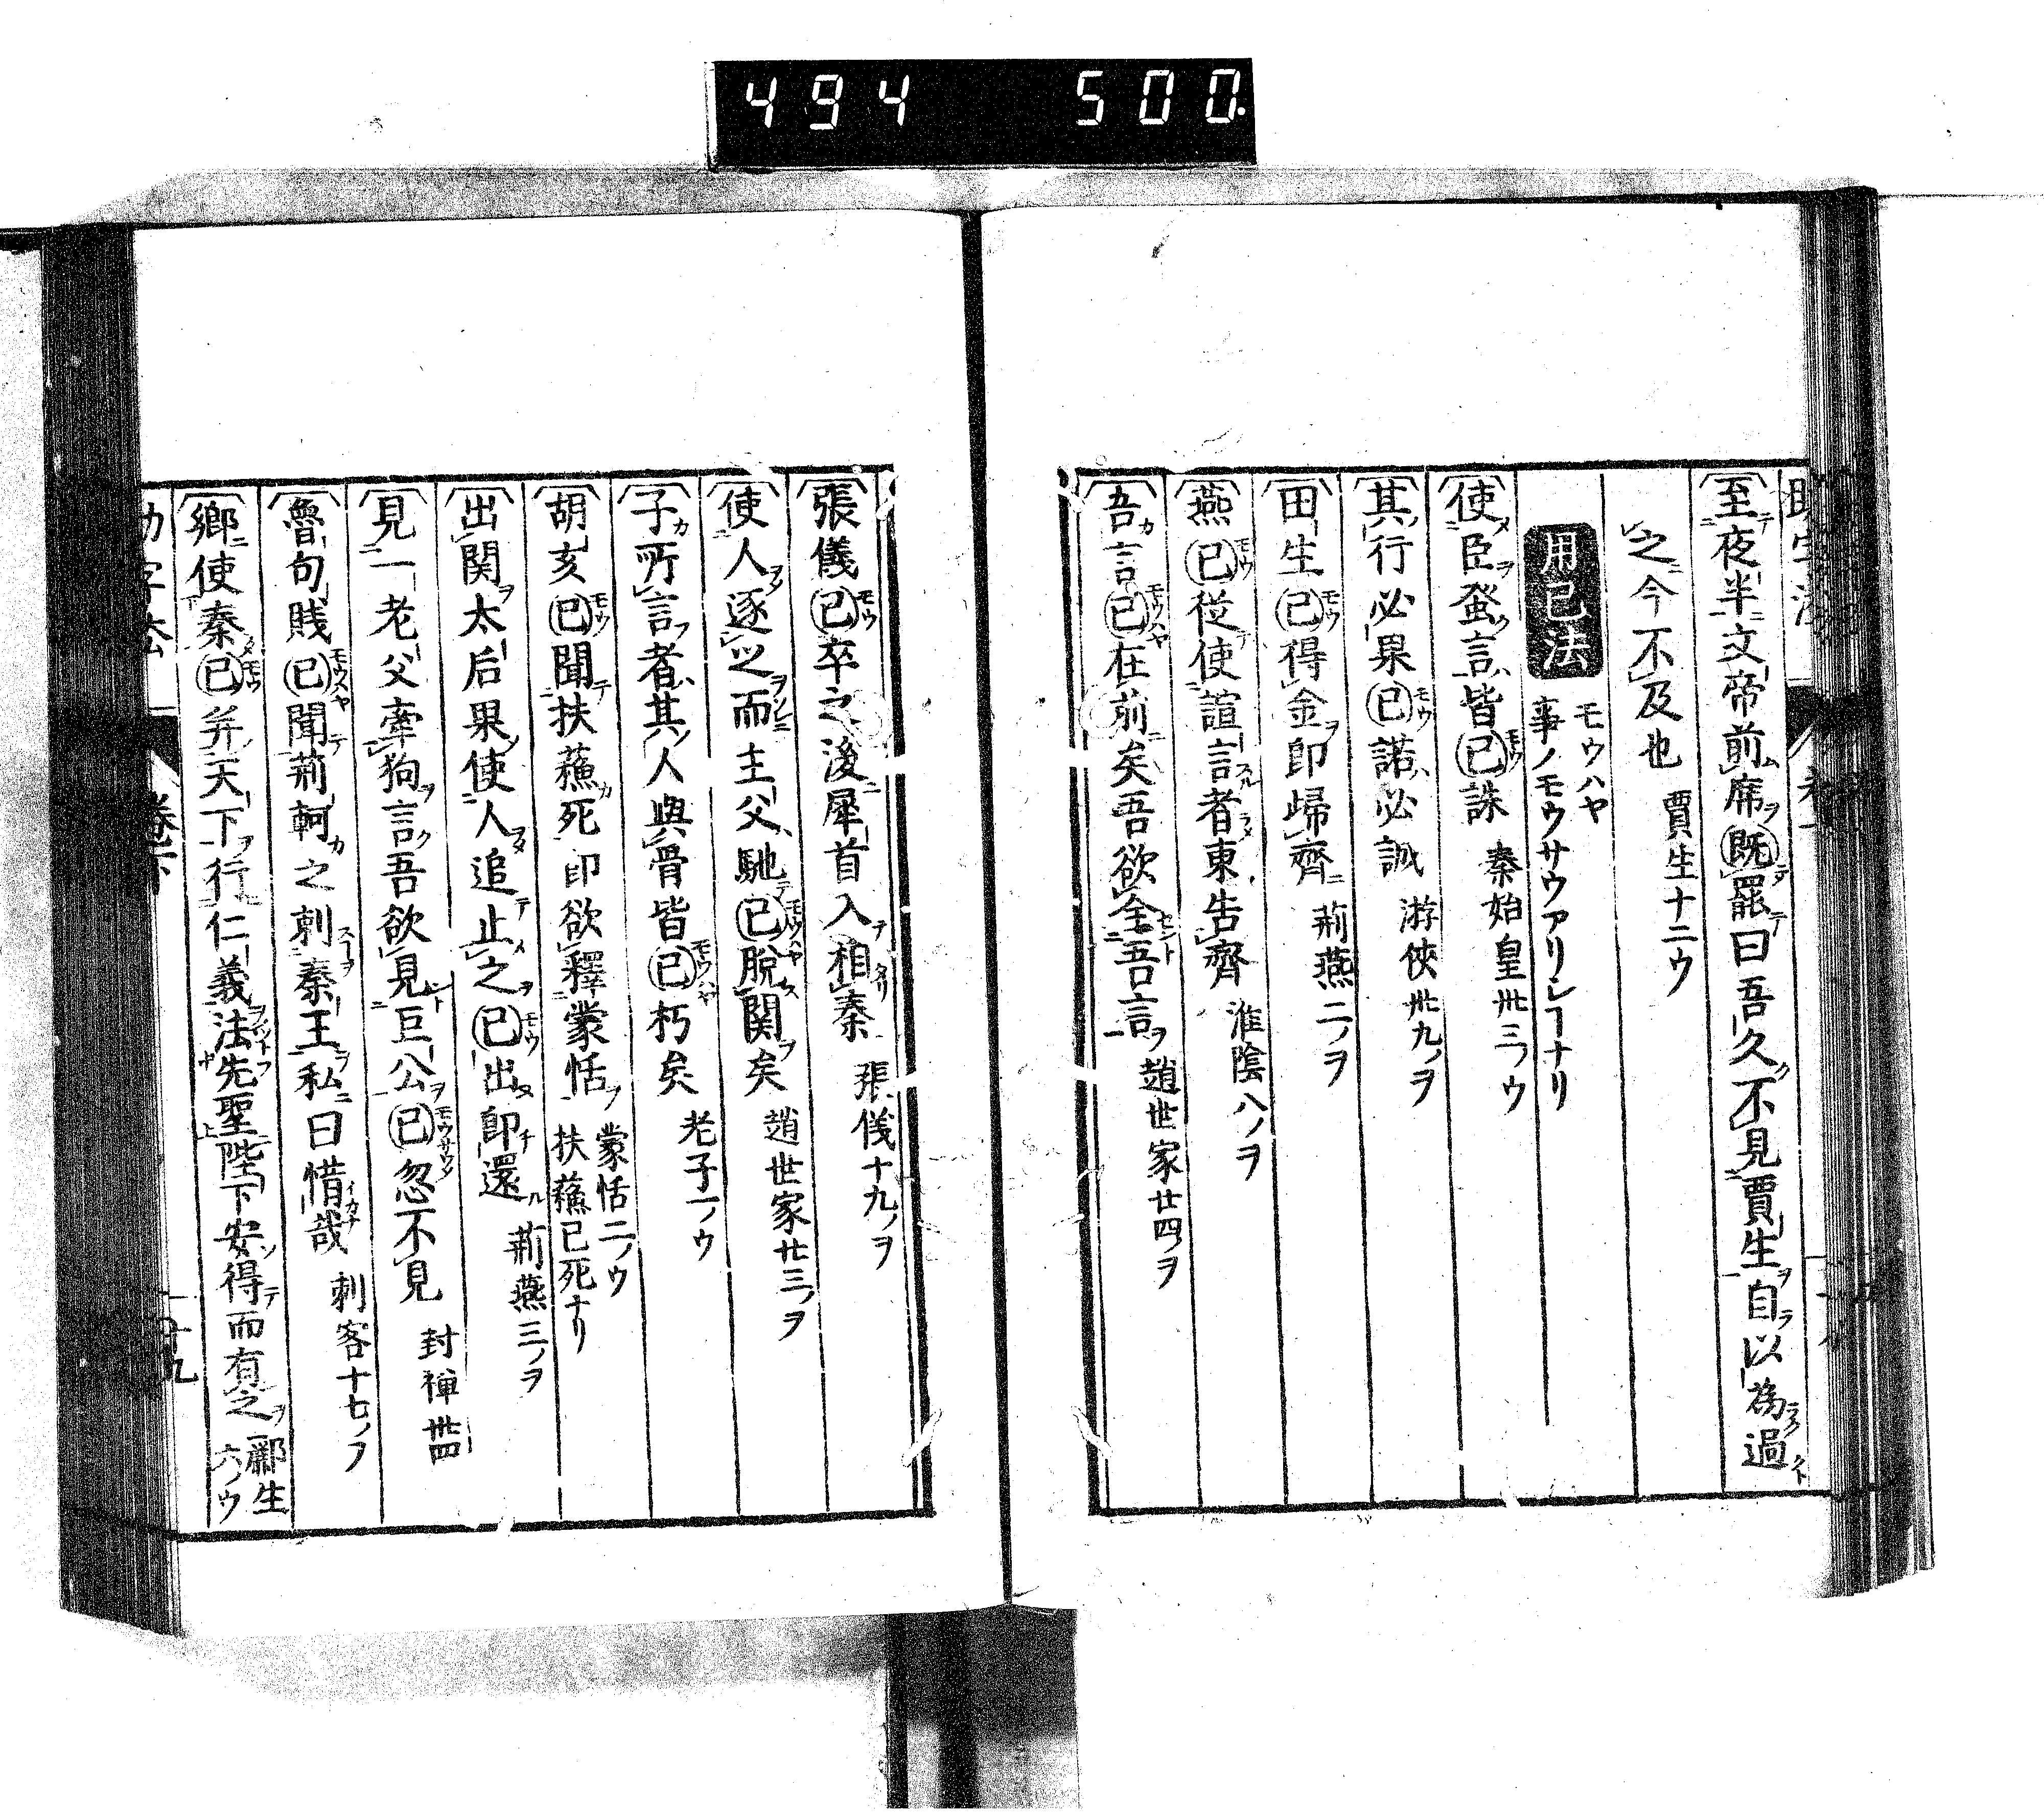 494 500.
至夜半文帝前席既罷曰吾久不見賈生自以為過
之今不及也 賈生十二ウ
用已法 モウハヤ 事ノモウサウアリシヿナリ
使臣發言皆已誅 秦始皇卅三ノウ
其行必果已諾必誠 游俠卅九ノヲ
田生已得金即歸齊 荊燕二ノヲ
燕已從使諠言者東告齊 淮陰八ノヲ
吾言已在前矣吾欲全吾言 趙世家廿四ノヲ
張儀已卒之後犀首入相秦 張儀十九ノヲ
使人逐之而主父馳已脫關矣 趙世家廿三ノヲ
子所言者其人與骨皆已朽矣 老子一ノウ
胡亥已聞扶蘓死即欲釋蒙恬 蒙恬二ノウ 扶蘓已死ナリ
出関太后果使人追止之已出即還 荊燕三ノヲ
見一老父牽狗言吾欲見巨公已忽不見 封禅卅四
魯句賤已聞荊軻之刺秦王私曰惜哉 刺客十七ノヲ
鄉使秦已并天下行仁義法先聖陛下安得而有之 酈生六ノウ
卷下